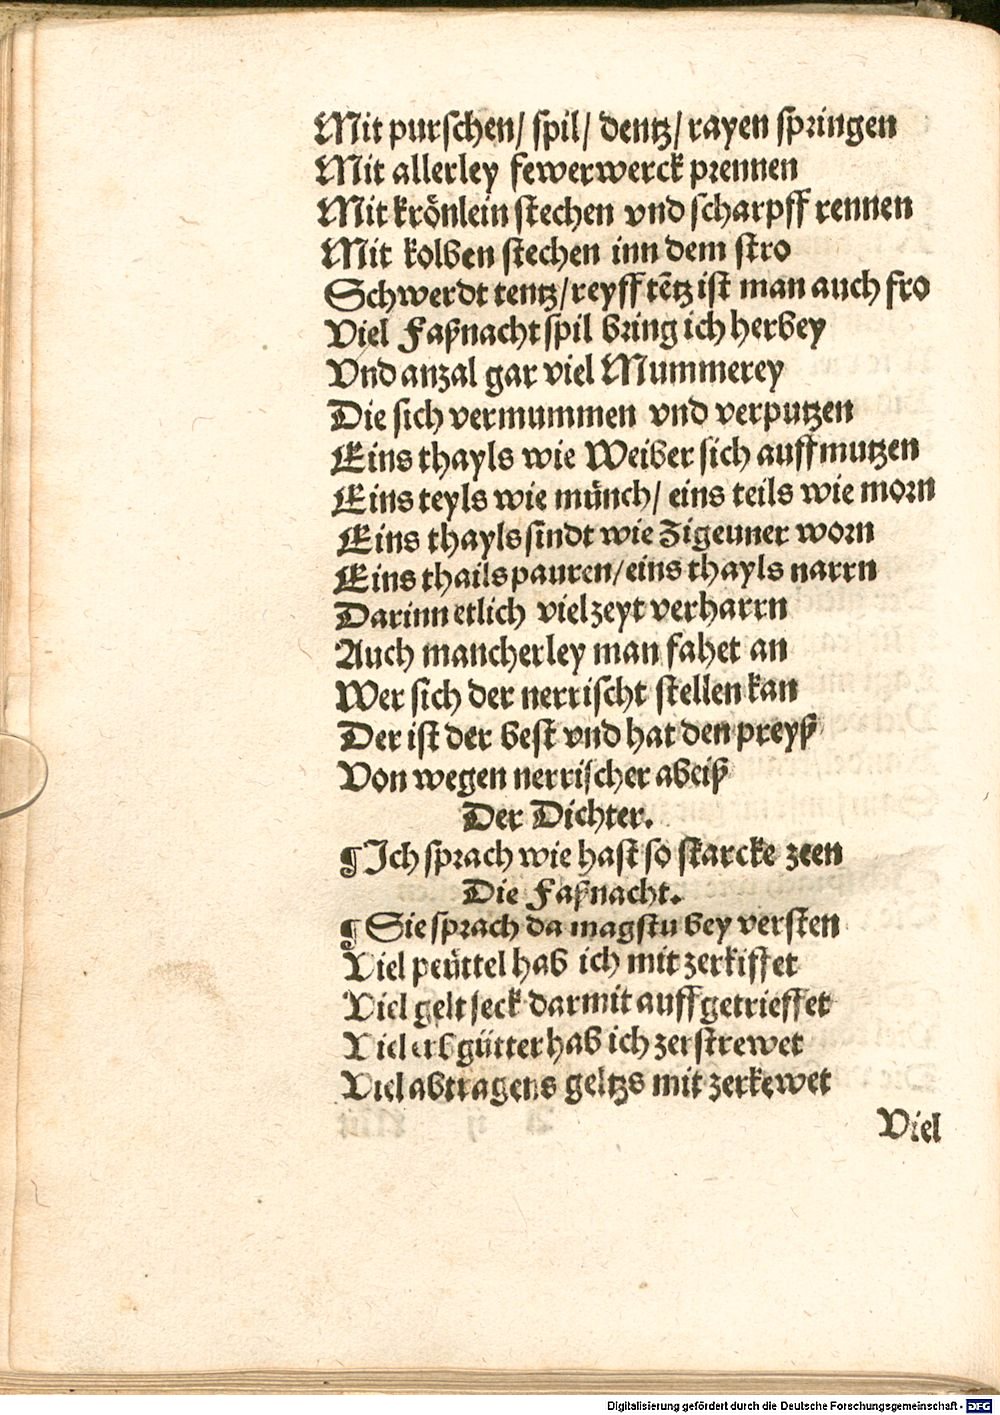 Mit purschen/ spil/ dentz/ rayen springen
Mit allerley fewerwerck prennen
Mit krönlein stechen vnd scharpff rennen
Mit kolben stechen inn dem stro
Schwerdt tentz/ reyff tētz ist man auch fro
Viel Faßnacht spil bring ich herbey
Vnd anzal gar viel Mummerey
Die sich vermummen vnd verputzen
Eins thayls wie Weiber sich auffmutzen
Eins teyls wie münch/ eins teils wie morn
Eins thayls sindt wie Zigeuner worn
Eins thails pauren/ eins thayls narrn
Darinn etlich viel zeyt verharrn
Auch mancherley man fahet an
Wer sich der nerrischt stellen kan
Der ist der best vnd hat den preyß
Von wegen nerrischer abeiß
Der Dichter.
¶ Ich sprach wie hast so starcke zeen
Die Faßnacht.
¶ Sie sprach da magstu bey versten
Viel peüttel hab ich mit zerkiffet
Viel gelt seck darmit auffgetrieffet
Viel erbgütter hab ich zerstrewet
Viel abtragens geltzs mit zerkewet
Viel
Digitalisierung gefördert durch die Deutsche Forschungsgemeinschaft - DFG